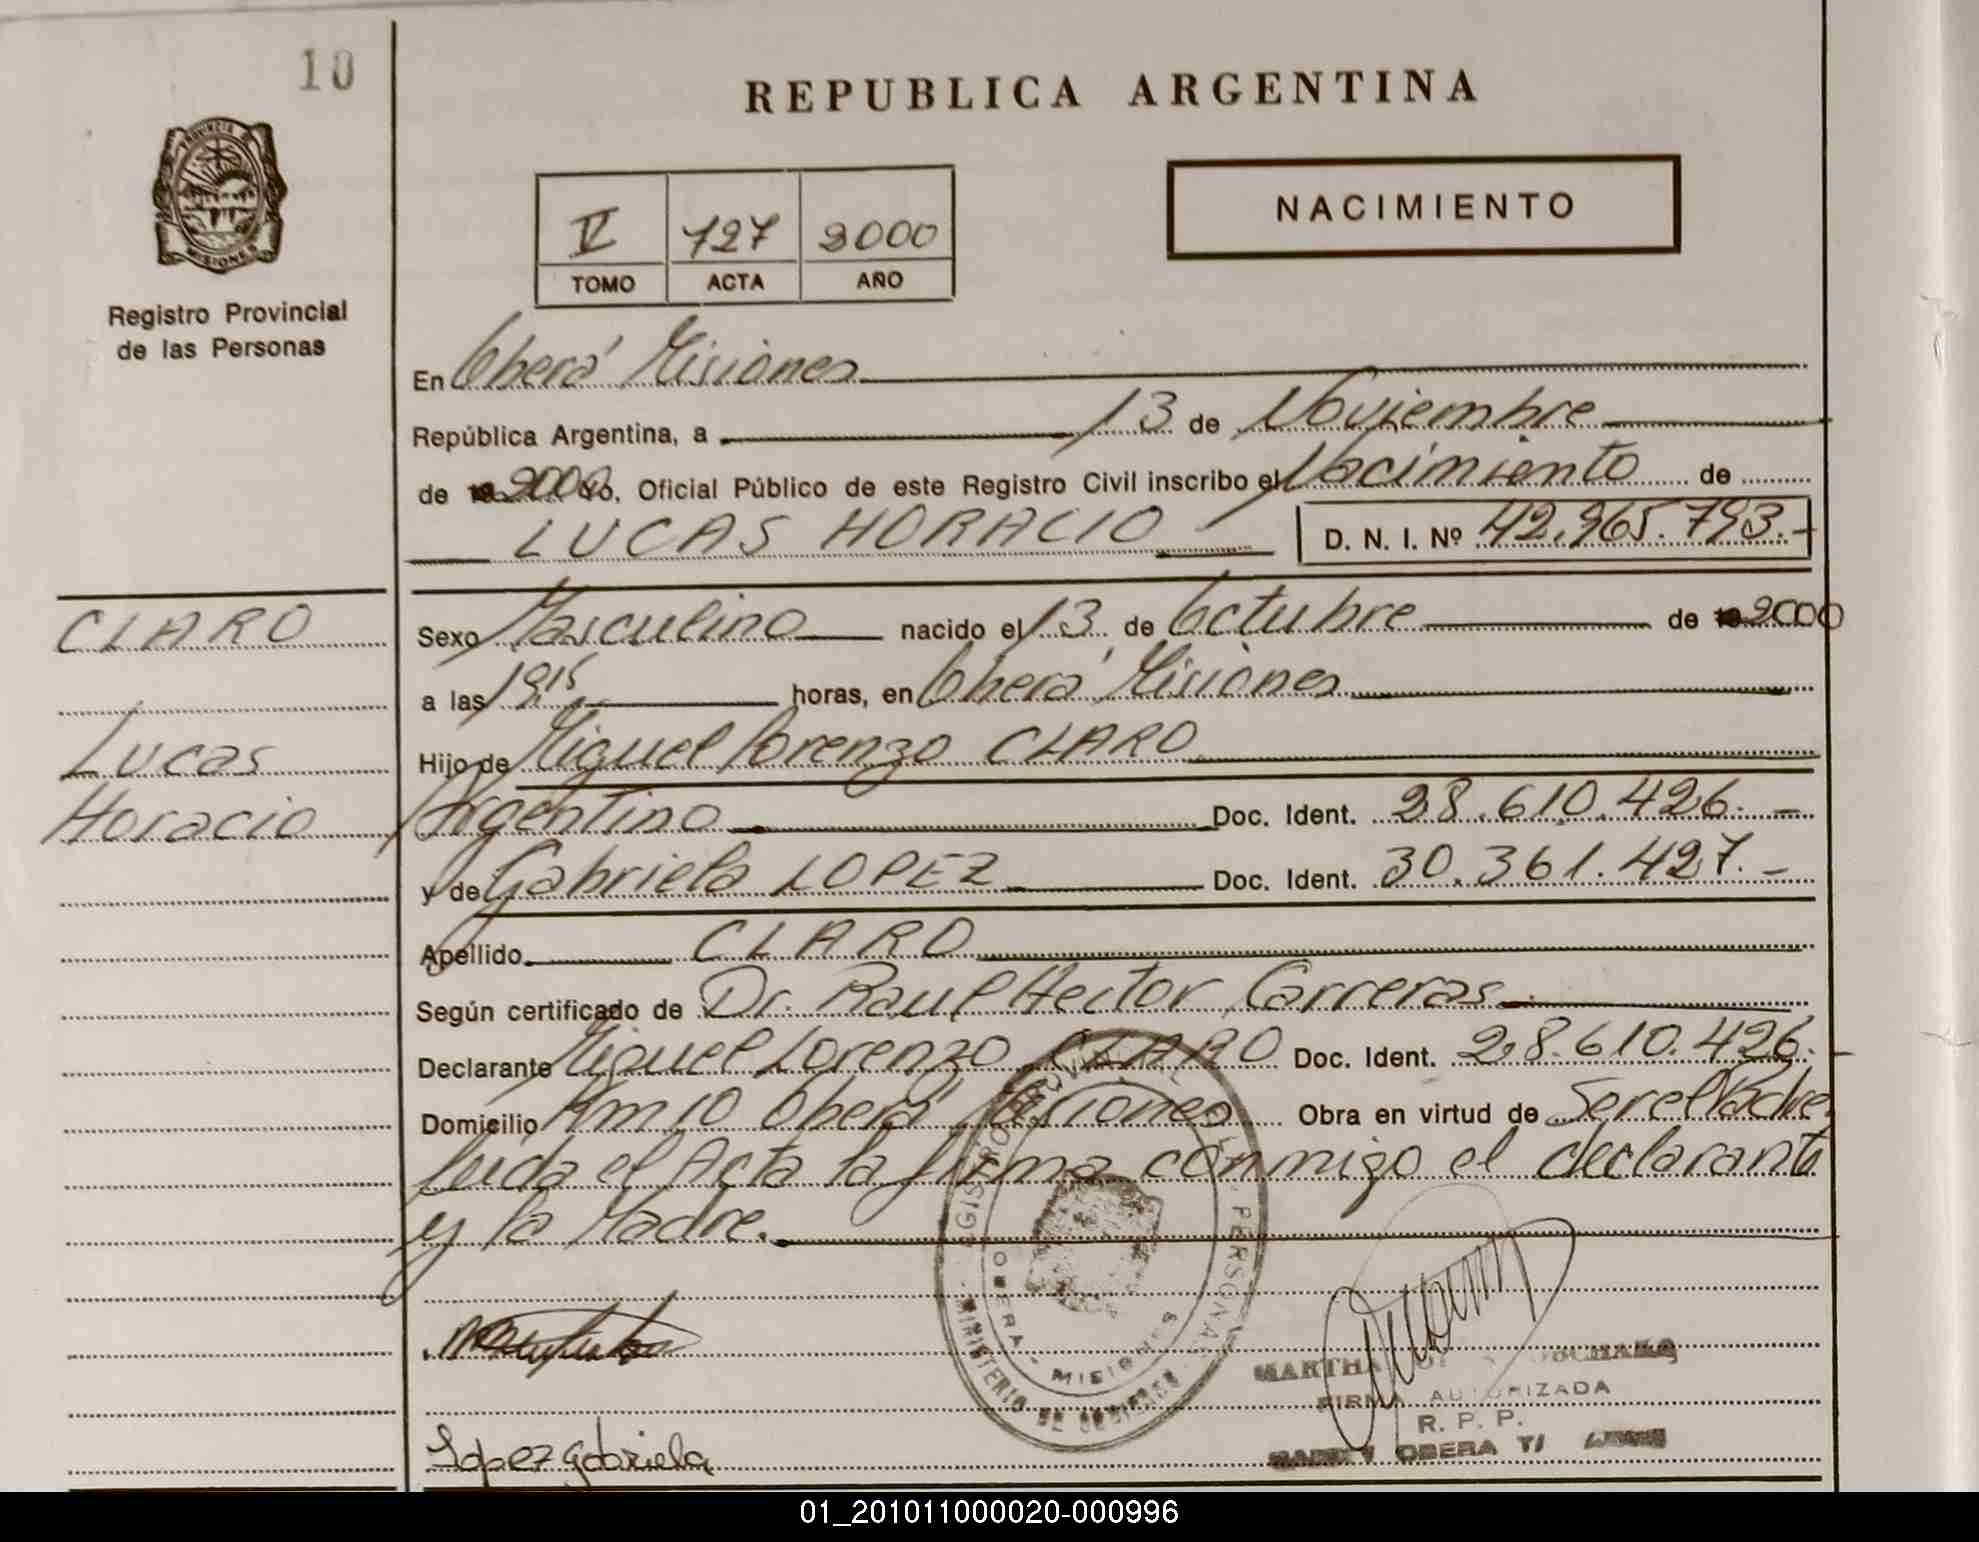 10
REPUBLICA ARGENTINA
NACIMIENTO
V 727 2000
TOMO ACTA AÑO
PROVINCIA DE
MISIONES
Registro Provincial
de las Personas
En Oberá Misiones
República Argentina, a 13 de Noviembre
de 19 2000 Yo, Oficial Público de este Registro Civil inscribo el Nacimiento de
LUCAS HORACIO D. N. I. Nº 42.965.793.-
CLARO
Lucas
Horacio
Sexo Masculino nacido el 13 de Octubre de 19 2000
a las 19,15 horas, en Oberá Misiones
Hijo de Miguel Lorenzo CLARO
Argentino Doc. Ident. 28.610.426.-
y de Gabriela LOPEZ Doc. Ident. 30.361.427.-
Apellido CLARO
Según certificado de Dr. Raul Hector Carreras
Declarante Miguel Lorenzo CLARO Doc. Ident. 28.610.426.-
Domicilio Km 10 Oberá Misiones Obra en virtud de Ser el Padre.
Leida el Acta la firma conmigo el declarante
y la Madre.
REGISTRO PROVINCIAL DE LAS PERSONAS
MINISTERIO DE GOBIERNO
OBERA - MISIONES
MARTHA
FIRMA AUTORIZADA
R. P. P.
OBERA
Lopez Gabriela
01_201011000020-000996